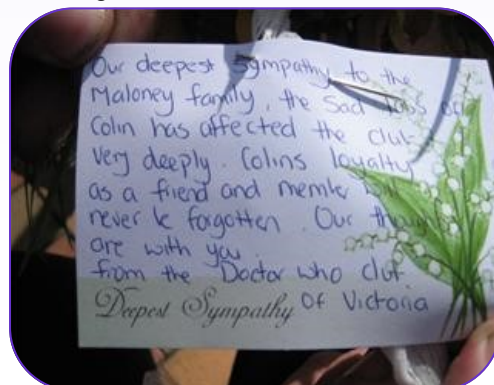 Our deepest sympathy to the
Maloney family, the sad loss of
Colin has affected the club
very deeply. Colins loyalty
as a friend and member will
never be forgotten. Our thoughts
are with you
from the Doctor who club
Deepest Sympathy Of Victoria